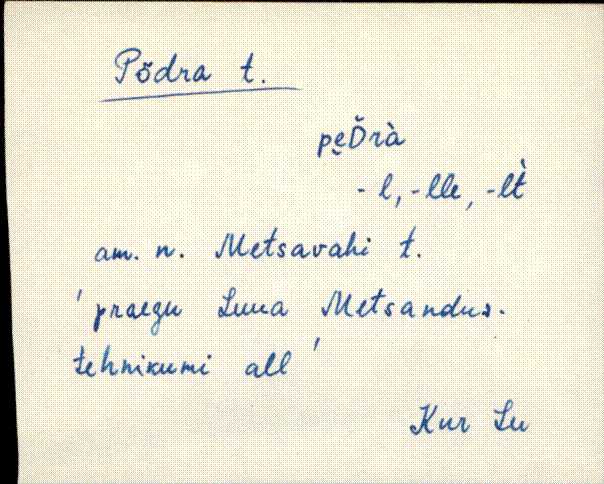 Põdra t.
pe̮D̆rà
-l, -lle, -lt̀
am. n. Metsavahi t.
'praegu Luua Metsandus-
tehnikumi all'
Kur Lu